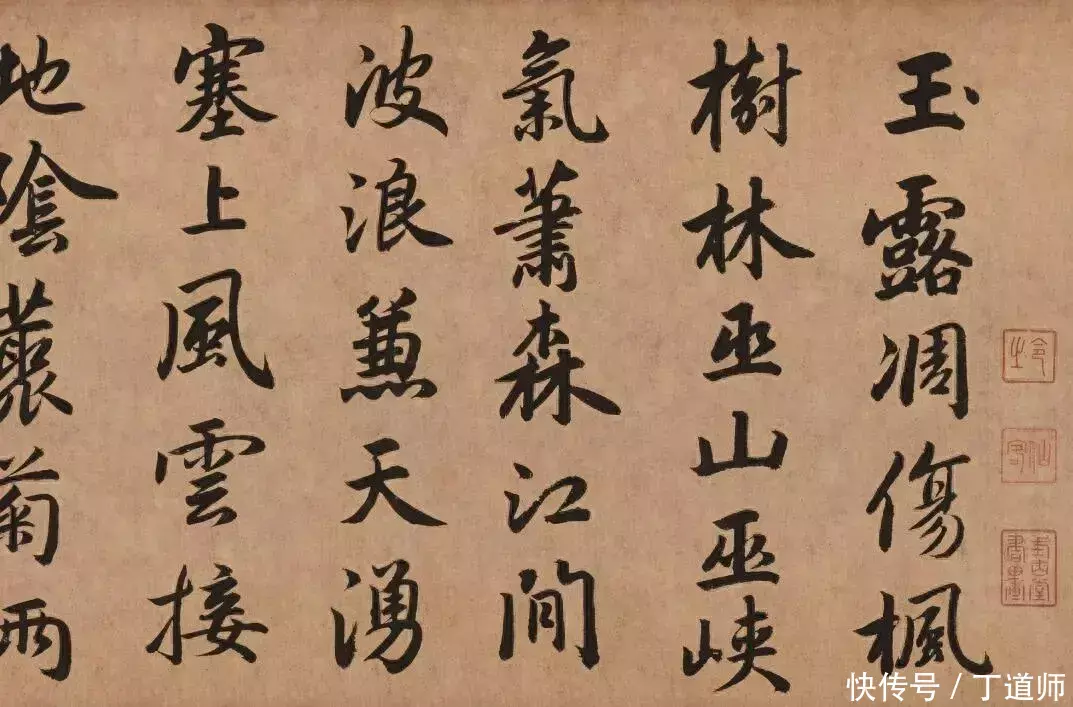 玉露凋傷楓
樹林巫山巫峽
氣蕭森江間
波浪兼天湧
塞上風雲接
地陰藂菊兩
快传号 / 丁道师